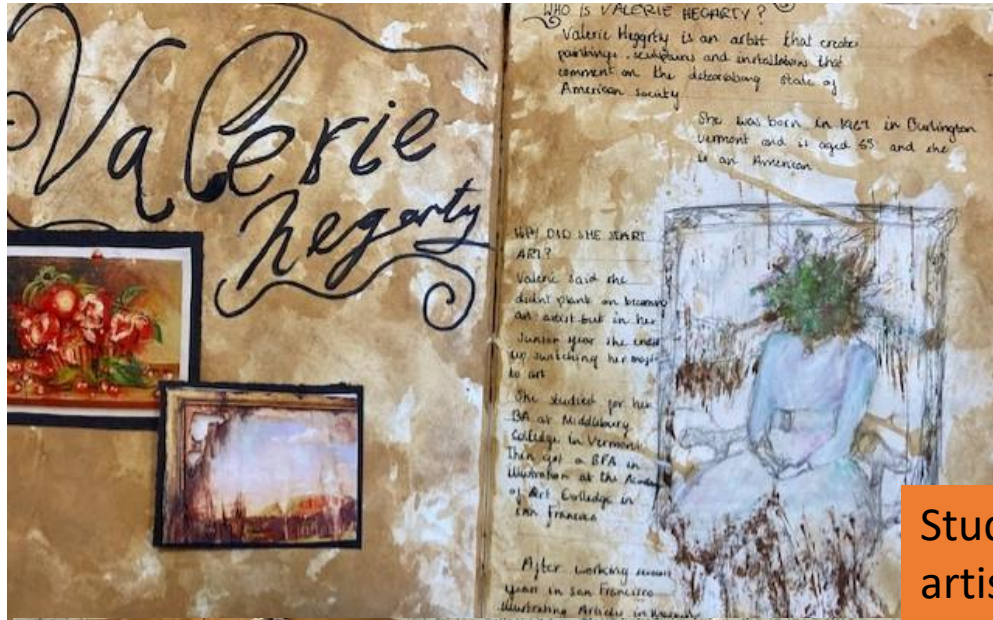 Valerie
hegarty
WHO IS VALERIE HEGARTY?
Valerie Hegarty is an artist that creates
paintings, sculptures and installations that
comment on the state of
American society
She was born in 1967 in Burlington
vermont and is aged 55 and she
is an American
WHY DID SHE START
ART?
Valerie said she
didnt plank on becoming
an artist but in her
Junior year she
up switching her
to art
She studied for her
BA at Middlebury
Colledge in Vermont
Then got a BFA in
illustration at the
of Art Colledge in
san Francisco
After working
years in san Francisco
illustrating Articles in
Stud
artis